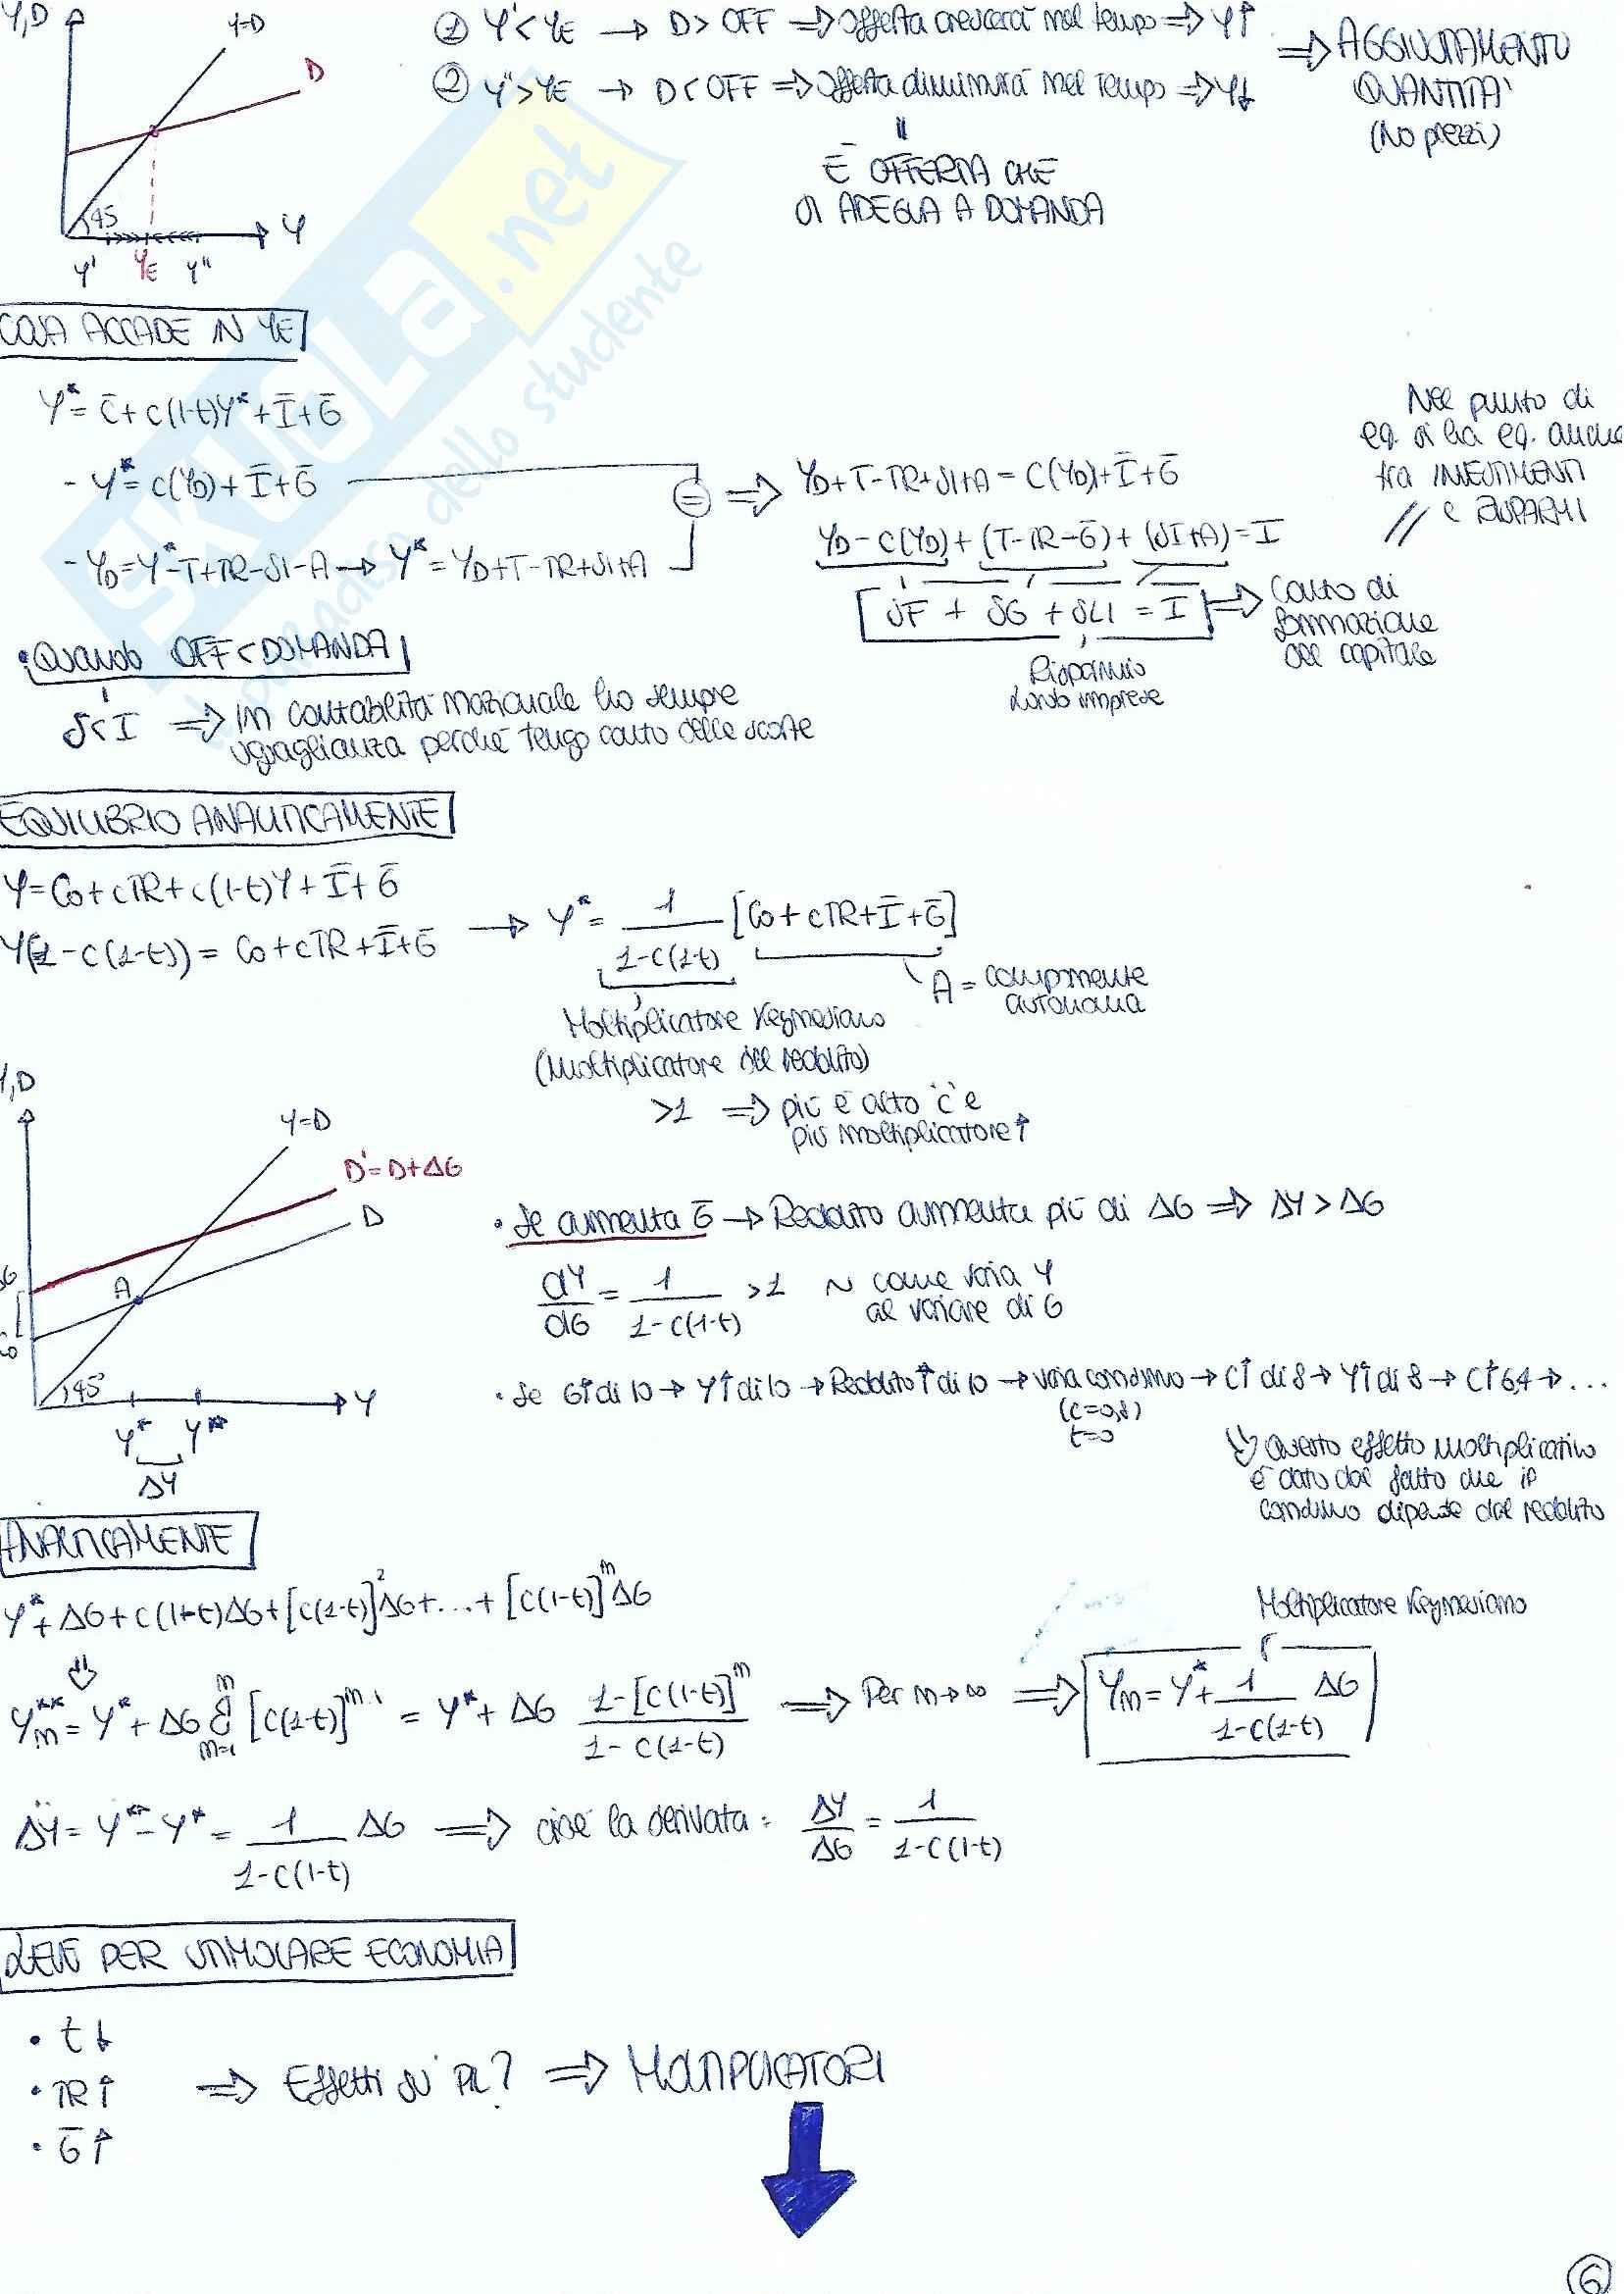 Y,D
Y=D
D
45
Y
Y' YE Y''
① Y' < YE → D > OFF ⇒ offerta crescerà nel tempo ⇒ Y↑
② Y'' > YE → D < OFF ⇒ offerta diminuirà nel tempo ⇒ Y↓
⇒ AGGIUSTAMENTO
QUANTITA'
(No prezzi)
È OFFERTA CHE
SI ADEGUA A DOMANDA
COSA ACCADE IN YE
Y* = C̄ + c(1-t)Y* + Ī + Ḡ
- Y* = C(YD) + Ī + Ḡ
- YD = Y* - T + TR - SI - A → Y* = YD + T - TR + SI + A
= ⇒ YD + T - TR + SI + A = C(YD) + Ī + Ḡ
YD - C(YD) + (T - TR - Ḡ) + (SI + A) = I
SF + SG + SLI = I ⇒ Conto di
formazione
del capitale
Risparmio
Lordo imprese
Nel punto di
eq. si ha eq. anche
tra INVESTIMENTI
e RISPARMI
• Quando OFF < DOMANDA
S < I ⇒ in contabilità nazionale ho sempre
uguaglianza perché tengo conto delle scorte
EQUILIBRIO ANALITICAMENTE
Y = C0 + cTR + c(1-t)Y + Ī + Ḡ
Y(1 - c(1-t)) = C0 + cTR + Ī + Ḡ
→ Y* = 1 / 1-c(1-t) [C0 + cTR + Ī + Ḡ]
A = componente
autonoma
Moltiplicatore Keynesiano
(moltiplicatore del reddito)
>1 ⇒ più è alto 'c' e
più moltiplicatore ↑
Y,D
Y=D
D' = D + ΔG
D
A
45°
Y
Y* Y**
ΔY
• Se aumenta Ḡ → Reddito aumenta più di ΔG ⇒ ΔY > ΔG
dY/dG = 1 / 1-c(1-t) > 1 ~ come varia Y
al variare di G
• Se G↑ di 10 → Y↑ di 10 → Reddito ↑ di 10 → varia consumo → C↑ di 8 → Y↑ di 8 → C↑ 6,4 → ...
(c=0,8)
t=0
Questo effetto moltiplicativo
è dato dal fatto che il
consumo dipende dal reddito
ANALITICAMENTE
Y* + ΔG + c(1-t)ΔG + [c(1-t)]²ΔG + ... + [c(1-t)]ⁿΔG
Moltiplicatore Keynesiano
Yn** = Y* + ΔG Σ [c(1-t)]ⁿ⁻¹ = Y* + ΔG 1-[c(1-t)]ⁿ / 1-c(1-t) ⇒ Per n→∞ ⇒ Yn = Y* + 1 / 1-c(1-t) ΔG
n=1
ΔY = Y** - Y* = 1 / 1-c(1-t) ΔG ⇒ cioè la derivata: ΔY/ΔG = 1 / 1-c(1-t)
LEVE PER STIMOLARE ECONOMIA
• t↓
• TR↑ ⇒ Effetti su PIL? ⇒ MOLTIPLICATORI
• Ḡ↑
6
SKUOLA.net
il paradiso dello studente